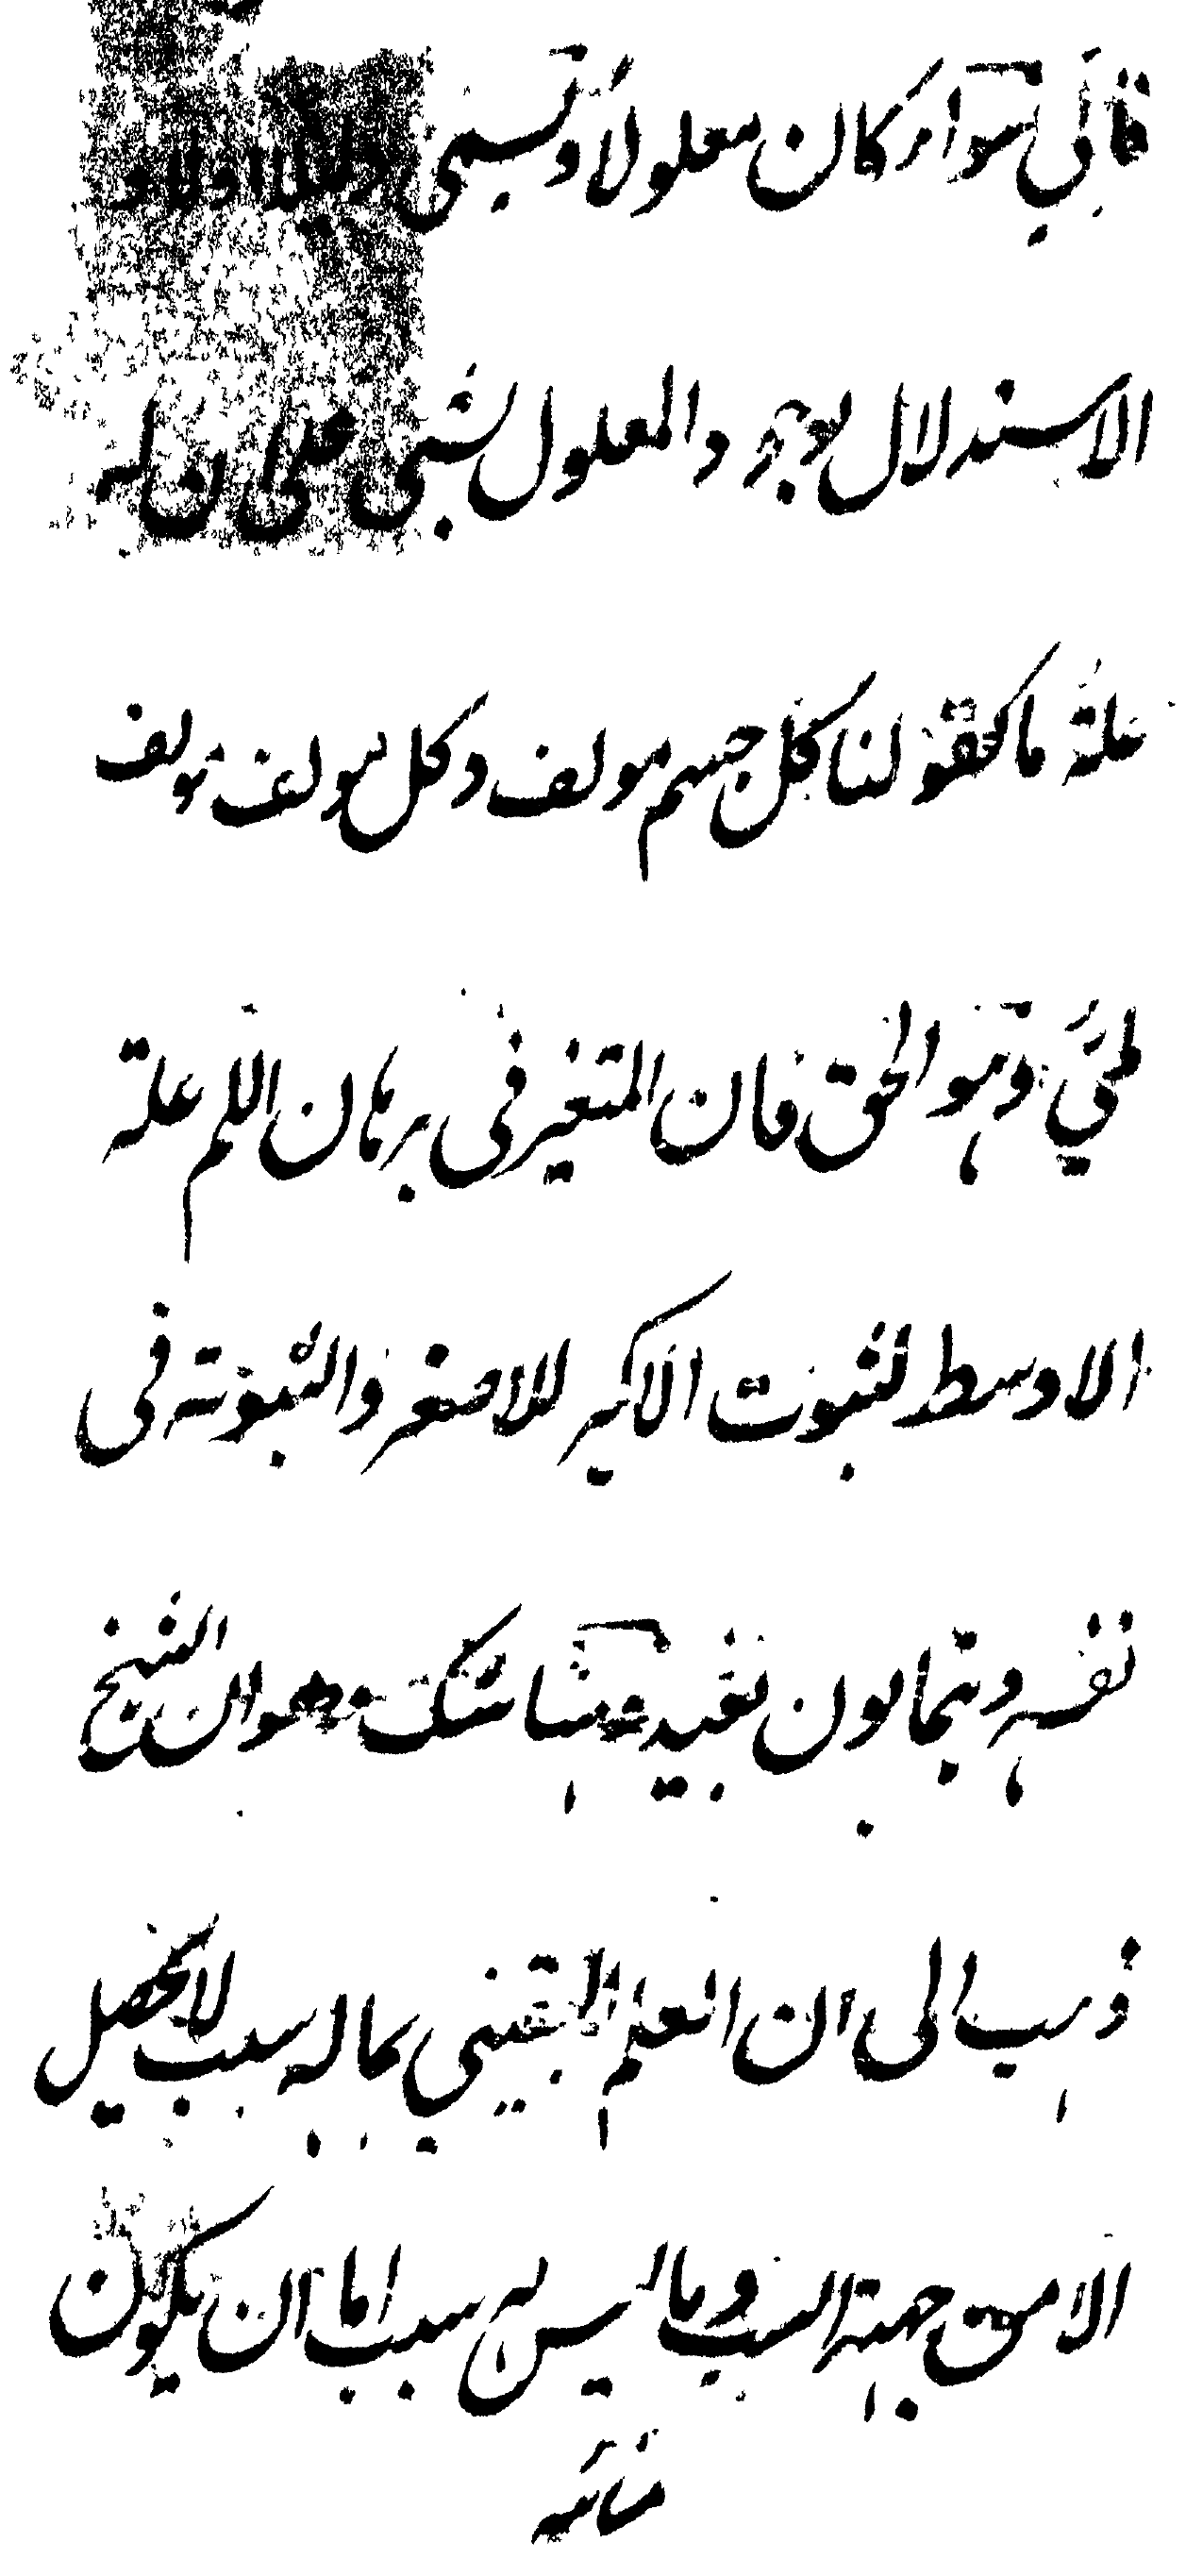 فاني سواء كان معلولا و تسمى دليلا اولا و
الاستدلال بوجود المعلول لشيء على ان له
علة ما كقولنا كل جسم مولف و كل مولف مولف
لمي و هو الحق فان المتغير في برهان اللم علة
الاوسط لثبوت الاكبر للاصغر و الثبوته في
نفسه و بينهما بون بعيد ههنا شك و هو ان الشيخ
ذهب الى ان العلم اليقيني بما له سبب لا يحصل
الا من جهة السبب و ما ليس له سبب اما ان يكون